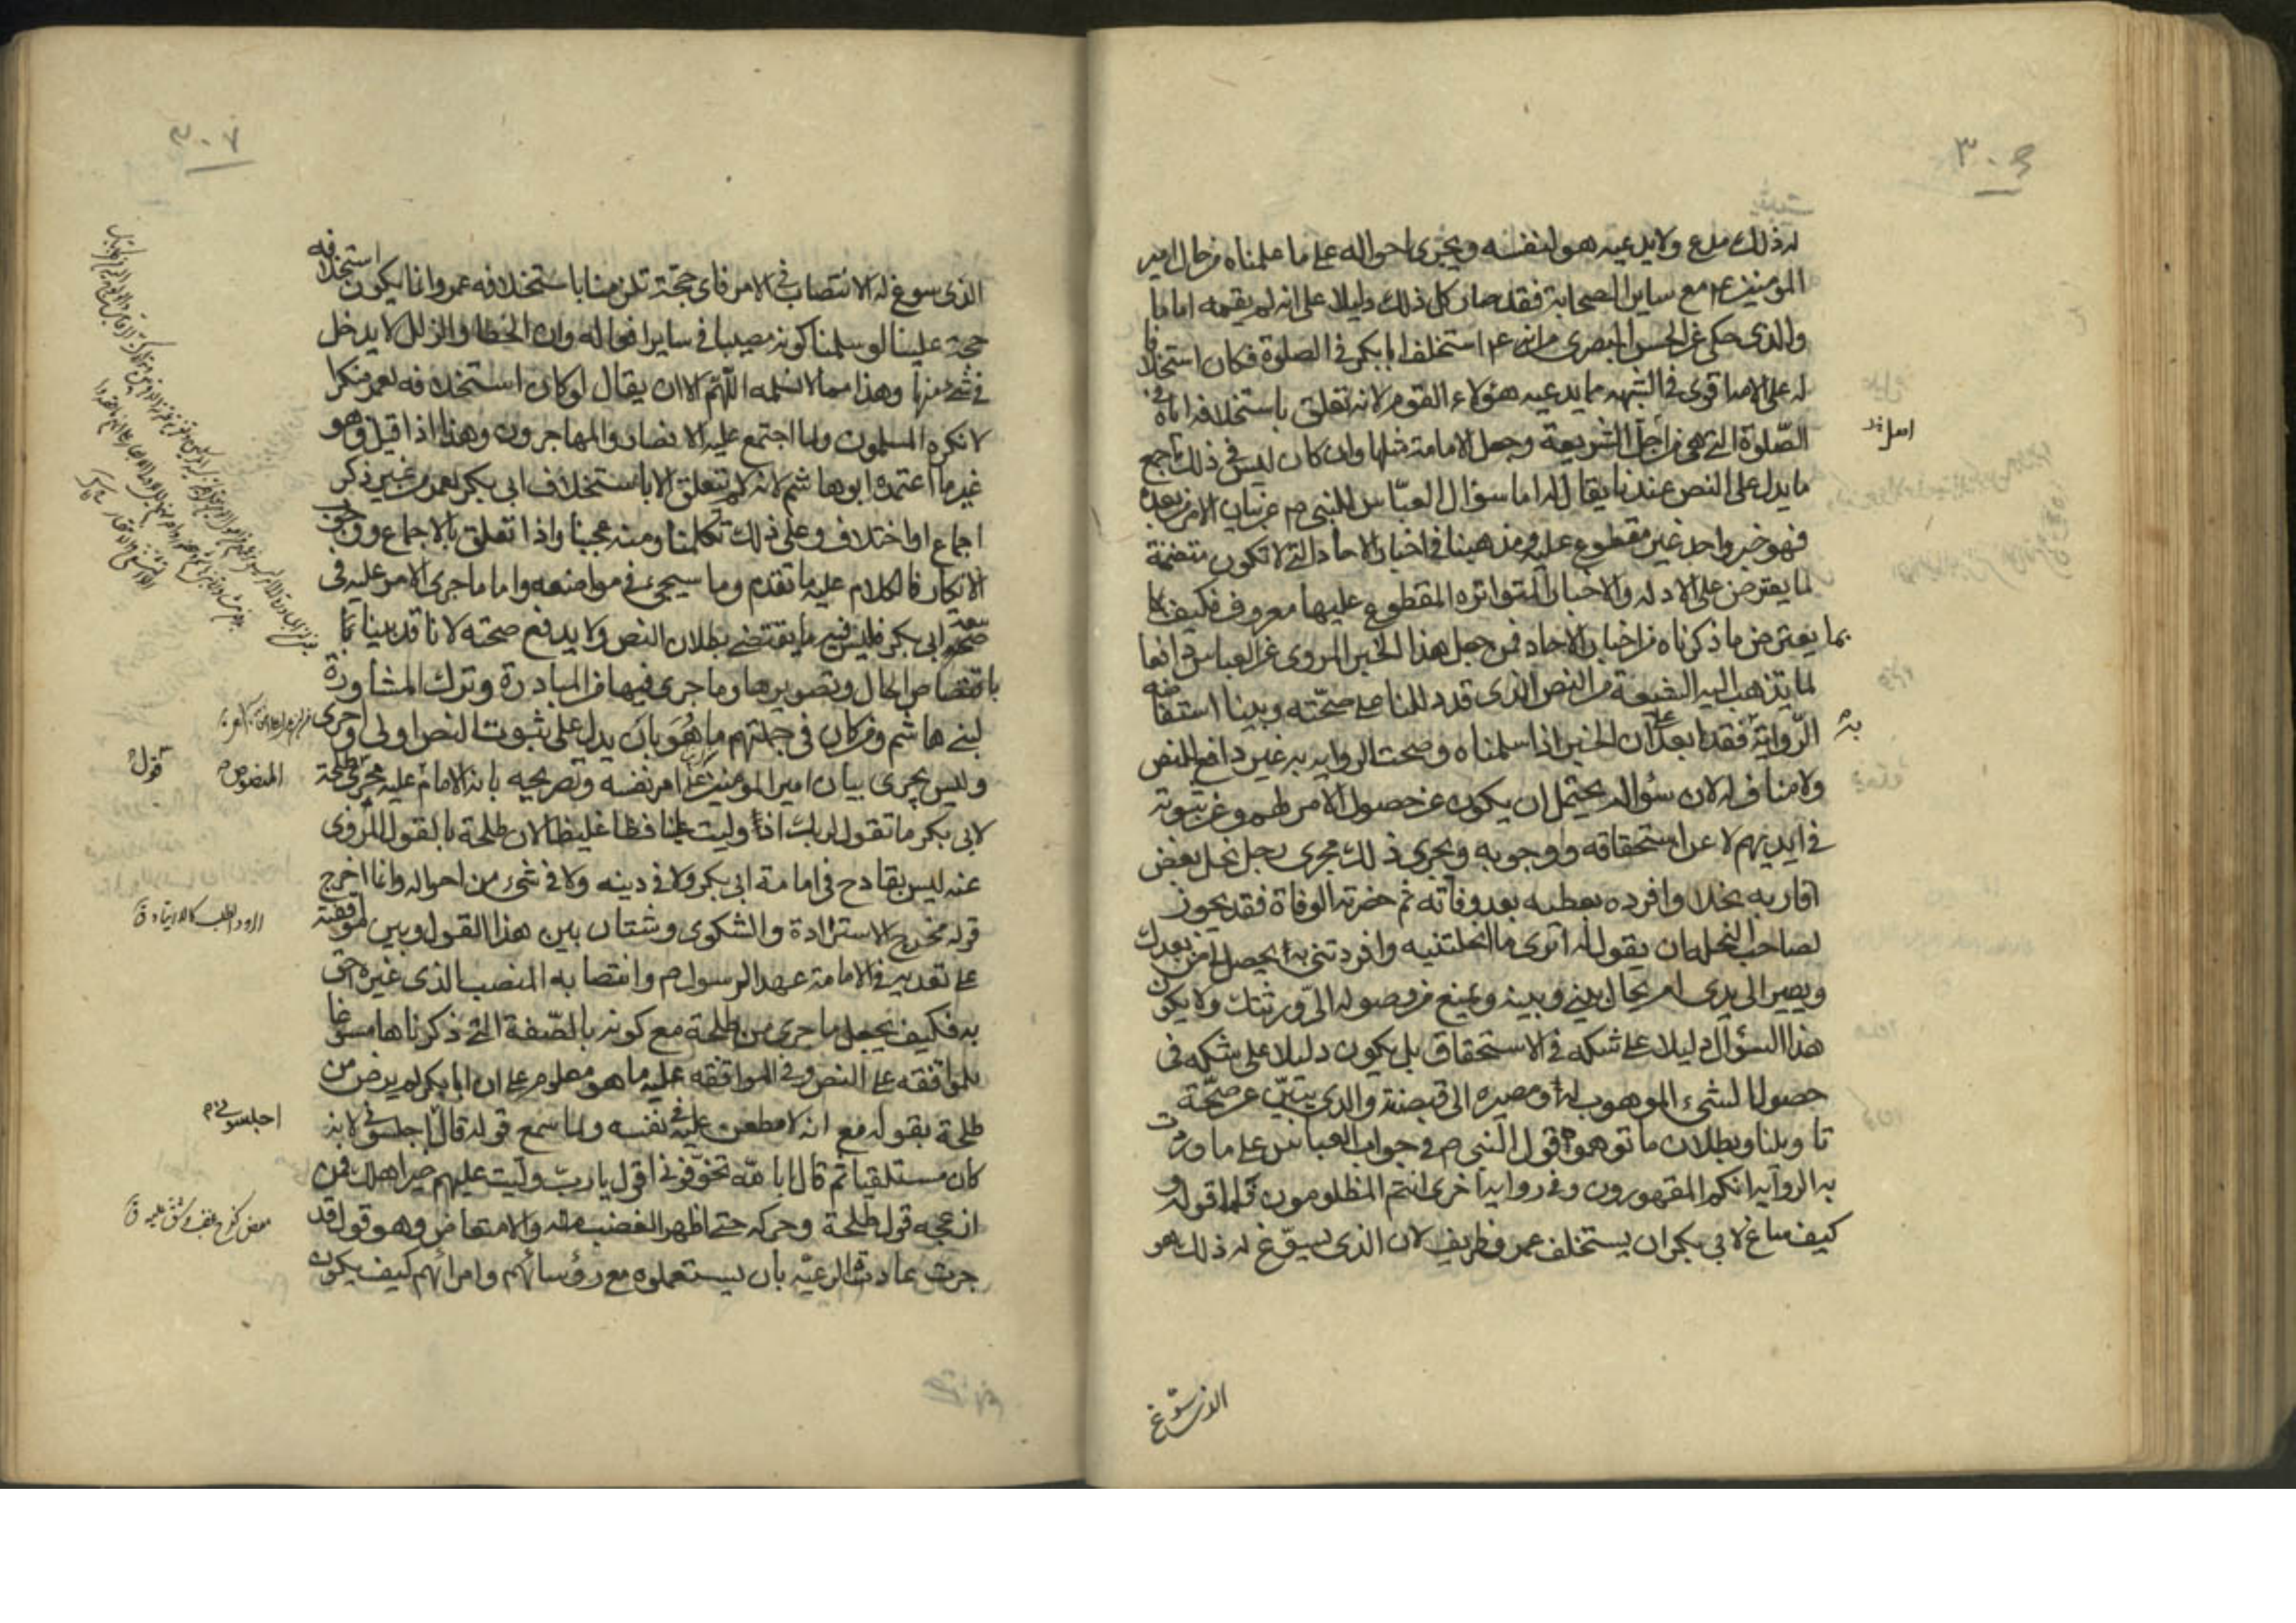 ٣٠٦
له ذلك مدع ولا يدعيه هو لنفسه ويجرى احواله على ما علمناه من حال امير
المؤمنين ع مع ساير الصحابة فقد صار كل ذلك دليلا على انه لم يقمه اماما
والذى حكى عن الحسن البصرى من انه ع استخلف ابا بكر فى الصلوة فكان استخلافا
له على الامة اقوى فى الشبهه مما يدعيه هؤلاء القوم لانه تعلق باستخلافه اياه فى
الصلوة التى هى من اجل الشريعة وجعل الامامة مثلها وان كان ليس فى ذلك اجمع
ما يدل على النص عندنا يقال له اما سؤال العباس للنبى ص عن بيان الامر بعده
فهو خبر واحد غير مقطوع عليه ومذهبنا فى اخبار الاحاد التى لا تكون متضمنة
لما يعترض على الادله والاخبار المتواتره المقطوع عليها معروف فكيف
بما يعترض ما ذكرناه من اخبار الاحاد فمن جعل هذا الخبر المروى عن العباس دافعا
لما يذهب اليه الشيعة من النص الذى قد دللنا على صحته وبينا استفاضة
الرواية به فقد ابعد على ان الخبر اذا سلمناه وصحت الروايه به غير دافع للنص
ولا مناف له لان سؤاله يحتمل ان يكون عن حصول الامر لهم وعن ثبوته
فى ايديهم لا عن استحقاقه ووجوبه ويجرى ذلك مجرى رجل نحل بعض
اقاربه نخلا وافرده بعطيه بعد وفاته ثم حضرته الوفاة فقد يجوز
لصاحب النحله ان يقول له اترى ما انحلتنيه وافردتنى به يحصل لى من بعدك
ويصير الى يدى ام يحال بينى وبينه ويمنع من وصوله الى ورثتك ولا يكون
هذا السؤال دليلا على شكه فى الاستحقاق بل يكون دليلا على شكه فى
حصول الشىء الموهوب له ومصيره الى قبضته والذى يبين عن صحة
تاويلنا وبطلان ما توهموه قول النبى ص فى جواب العباس على ما وردت
به الرواية انكم المقهورون وفى رواية اخرى انتم المظلومون فاما قوله
كيف ساغ لابى بكر ان يستخلف عمر فطريف لان الذى يسوغ له ذلك هو
الذى سوغ
٣٠٧
الذى سوغ له الانتصاب فى الامر فاى حجة تلزمنا باستخلافه عمر وانما يكون استخلافه
حجة علينا لو سلمنا كونه مصيبا فى ساير افعاله وان الخطا والزلل لا يدخل
فى شىء منها وهذا مما لا نسلمه اللهم الا ان يقال لو كان استخلافه لعمر منكرا
لانكره المسلمون ولما اجتمع عليه الانصار والمهاجرون وهذا اذا قيل وهو
غير ما اعتمده ابو هاشم لانه لم يتعلق الا باستخلاف ابى بكر لعمر من غير ذكر
اجماع او اختلاف وعلى ذلك تكلمنا ومنه عجبنا واذا تعلق بالاجماع ووجوب
الانكار فالكلام عليه ما تقدم وما سيجىء فى مواضعه واما ما جرى الامر عليه فى
بيعة ابى بكر فليس فيه ما يقتضى بطلان النص ولا يدفع صحته لانا قد بينا
باقتصاص الحال وتصويرها وما جرى فيها من المبادرة وترك المشاورة
لبنى هاشم ومن كان فى جملتهم ما هو بان يدل على ثبوت النص اولى واحرى
وليس يجرى بيان امير المؤمنين ع امر نفسه وتصريحه بانه الامام المنصوص عليه مجرى قول طلحة
لابى بكر ما تقول لربك اذا وليت علينا فظا غليظا لان طلحة بالقول المروى
عنه ليس بقادح فى امامة ابى بكر ولا فى دينه ولا فى شىء من احواله وانما اخرج
قوله مخرج الاستزادة والشكوى وشتان بين هذا القول وبين موافقته
على تعديه فى الامامة عهد الرسول ص وانتصابه المنصب الذى غيره احق
به فكيف يجعل ما جرى من طلحة مع كونه بالصفة التى ذكرناها مسوغا
للموافقه على النص وفى الموافقه عليه ما هو معلوم على ان ابا بكر لم يرض من
طلحة بقوله مع انه لا مطعن عليه فى نفسه ولما سمع قوله قال اجلسونى لانه
كان مستلقيا ثم قال ابالله تخوفونى اقول يا رب وليت عليهم خير اهلك فمن
ازعجه قول طلحة وحركه حتى اظهر الغضب منه والامتعاض وهو قول قد
جرت عادت الرعيه بان يستعملوه مع رؤسائهم وامرائهم كيف يكون
المنصوص
قول
اجلسونى